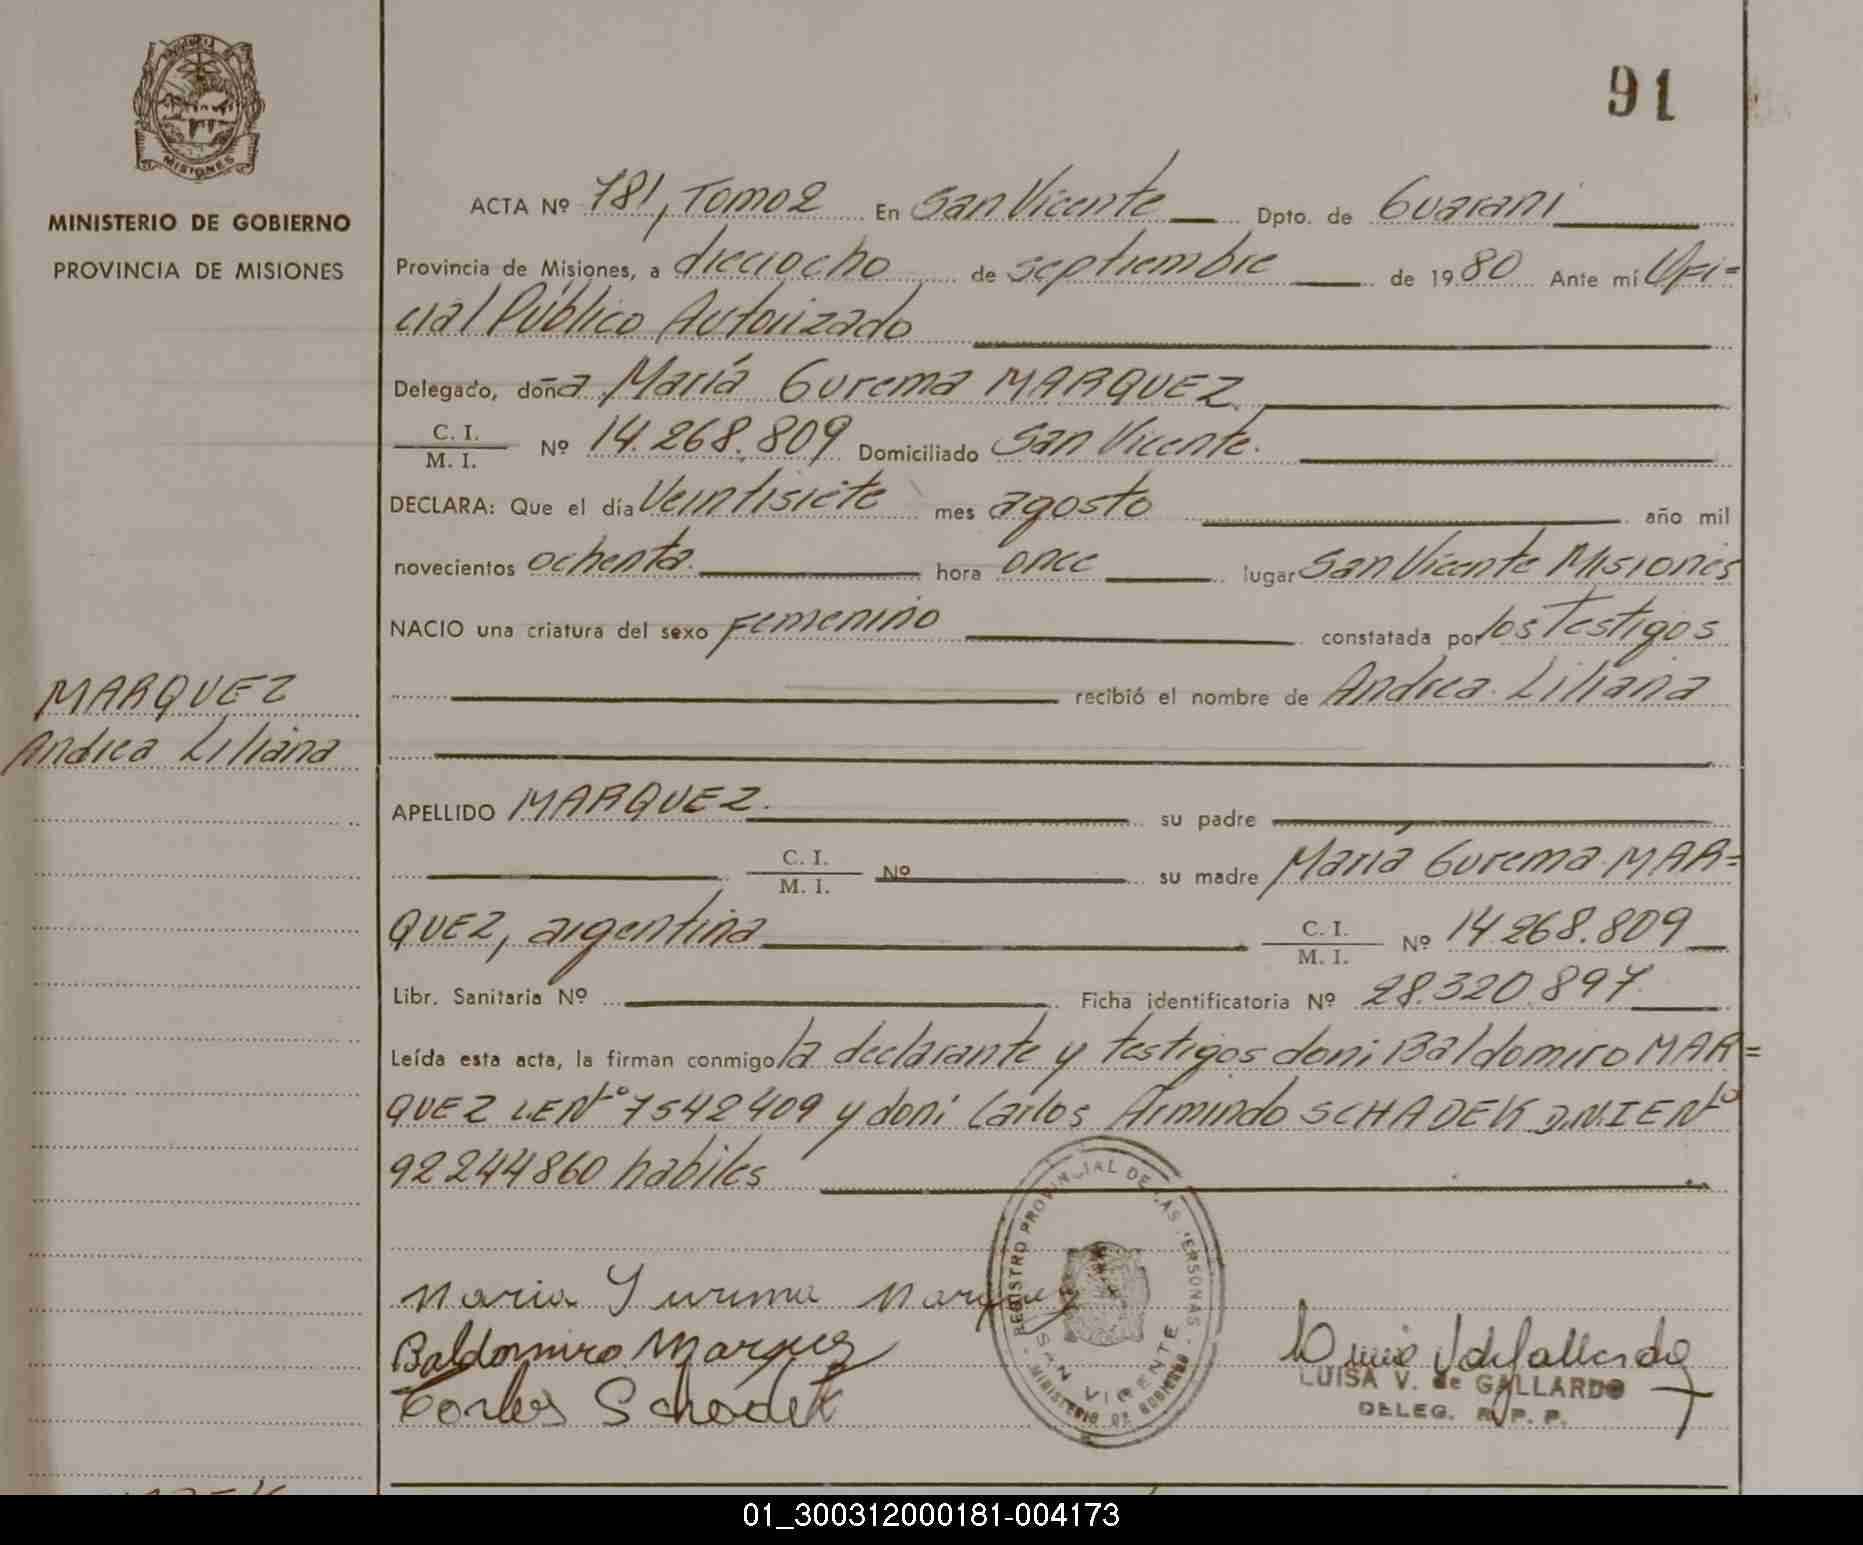 91
MISIONES
MINISTERIO DE GOBIERNO
PROVINCIA DE MISIONES
ACTA Nº 781, Tomo 2 En San Vicente Dpto. de Guaraní
Provincia de Misiones, a dieciocho de septiembre de 1980 Ante mí Ofi=
cial Público Autorizado
Delegado, doña María Gurema MARQUEZ
C. I.
M. I. Nº 14.268.809 Domiciliado San Vicente.
DECLARA: Que el día Veintisiete mes agosto año mil
novecientos ochenta. hora once lugar San Vicente Misiones
NACIO una criatura del sexo Femenino constatada por los Testigos
recibió el nombre de Andrea Liliana
MARQUEZ
Andrea Liliana
APELLIDO MARQUEZ. su padre
C. I.
M. I. Nº su madre María Gurema MAR=
QUEZ, argentina C. I.
M. I. Nº 14.268.809
Libr. Sanitaria Nº Ficha identificatoria Nº 28.320.897
Leída esta acta, la firman conmigo la declarante y testigos don: Baldomiro MAR=
QUEZ LE Nº 7542409 y don: Carlos Armindo SCHADEK D.N.I E Nº
92244860 habiles
Maria Yurema Marquez
Baldomiro Marquez
Carlos Schadek
REGISTRO PROVINCIAL DE LAS PERSONAS
SAN VICENTE
MINISTERIO DE GOBIERNO
LUISA V. de GALLARDO
DELEG. R. P. P.
01_300312000181-004173